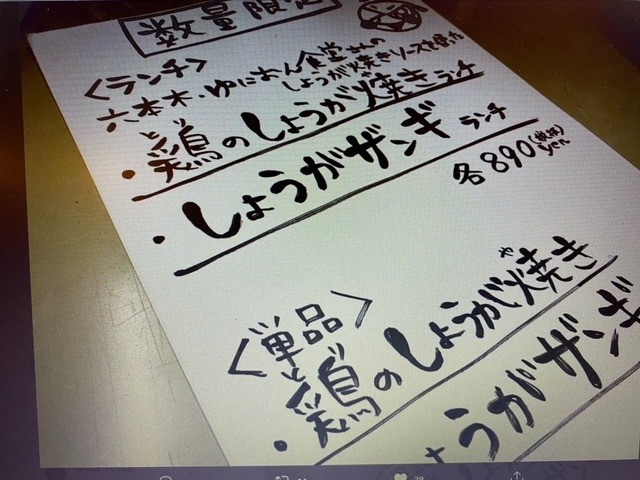 数量限定
<ランチ>
六本木・ゆにおん食堂さんの
しょうが焼きソースを使った
・鶏のしょうが焼きランチ
とり
・しょうがザンギ ランチ
各890(税抜)yen
<単品>
や
・鶏のしょうが焼き
とり
うがザンギ